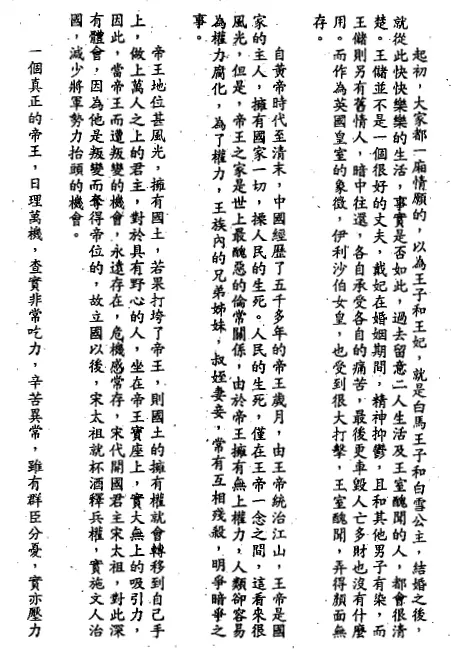 起初，大家都一廂情願的，以為王子和王妃，就是白馬王子和白雪公主，結婚之後，
就從此快快樂樂的生活，事實是否如此，過去留意二人生活及王室醜聞的人，都會很清
楚。王儲並不是一個很好的丈夫，戴妃在婚姻期間，精神抑鬱，且和其他男子有染，而
王儲則另有舊情人，暗中往還，各自承受各自的痛苦，最後更車毀人亡多財也沒有什麼
用。而作為英國皇室的象徵，伊利沙伯女皇，也受到很大打擊，王室醜聞，弄得顏面無
存。
自黃帝時代至清末，中國經歷了五千多年的帝王歲月，由王帝統治江山，王帝是國
家的主人，擁有國家一切，操人民的生死。人民的生死，僅在王帝一念之間，這看來很
風光，但是，帝王之家是世上最醜惡的倫常關係，由於帝王擁有無上權力，人類卻容易
為權力腐化，為了權力，王族內的兄弟姊妹，叔姪妻妾，常有互相殘殺，明爭暗爭之
事。
帝王地位甚風光，擁有國土，若果打垮了帝王，則國土的擁有權就會轉移到自己手
上，做上萬人之上的君主，對於具有野心的人，坐在帝王寶座上，實大無上的吸引力，
因此，當帝王而遭叛變的機會，永遠存在，危機感常存，宋代開國君主宋太祖，對此深
有體會，因為他是叛變而奪得帝位的，故立國以後，宋太祖就杯酒釋兵權，實施文人治
國，減少將軍勢力抬頭的機會。
一個真正的帝王，日理萬機，查實非常吃力，辛苦異常，雖有群臣分憂，實亦壓力